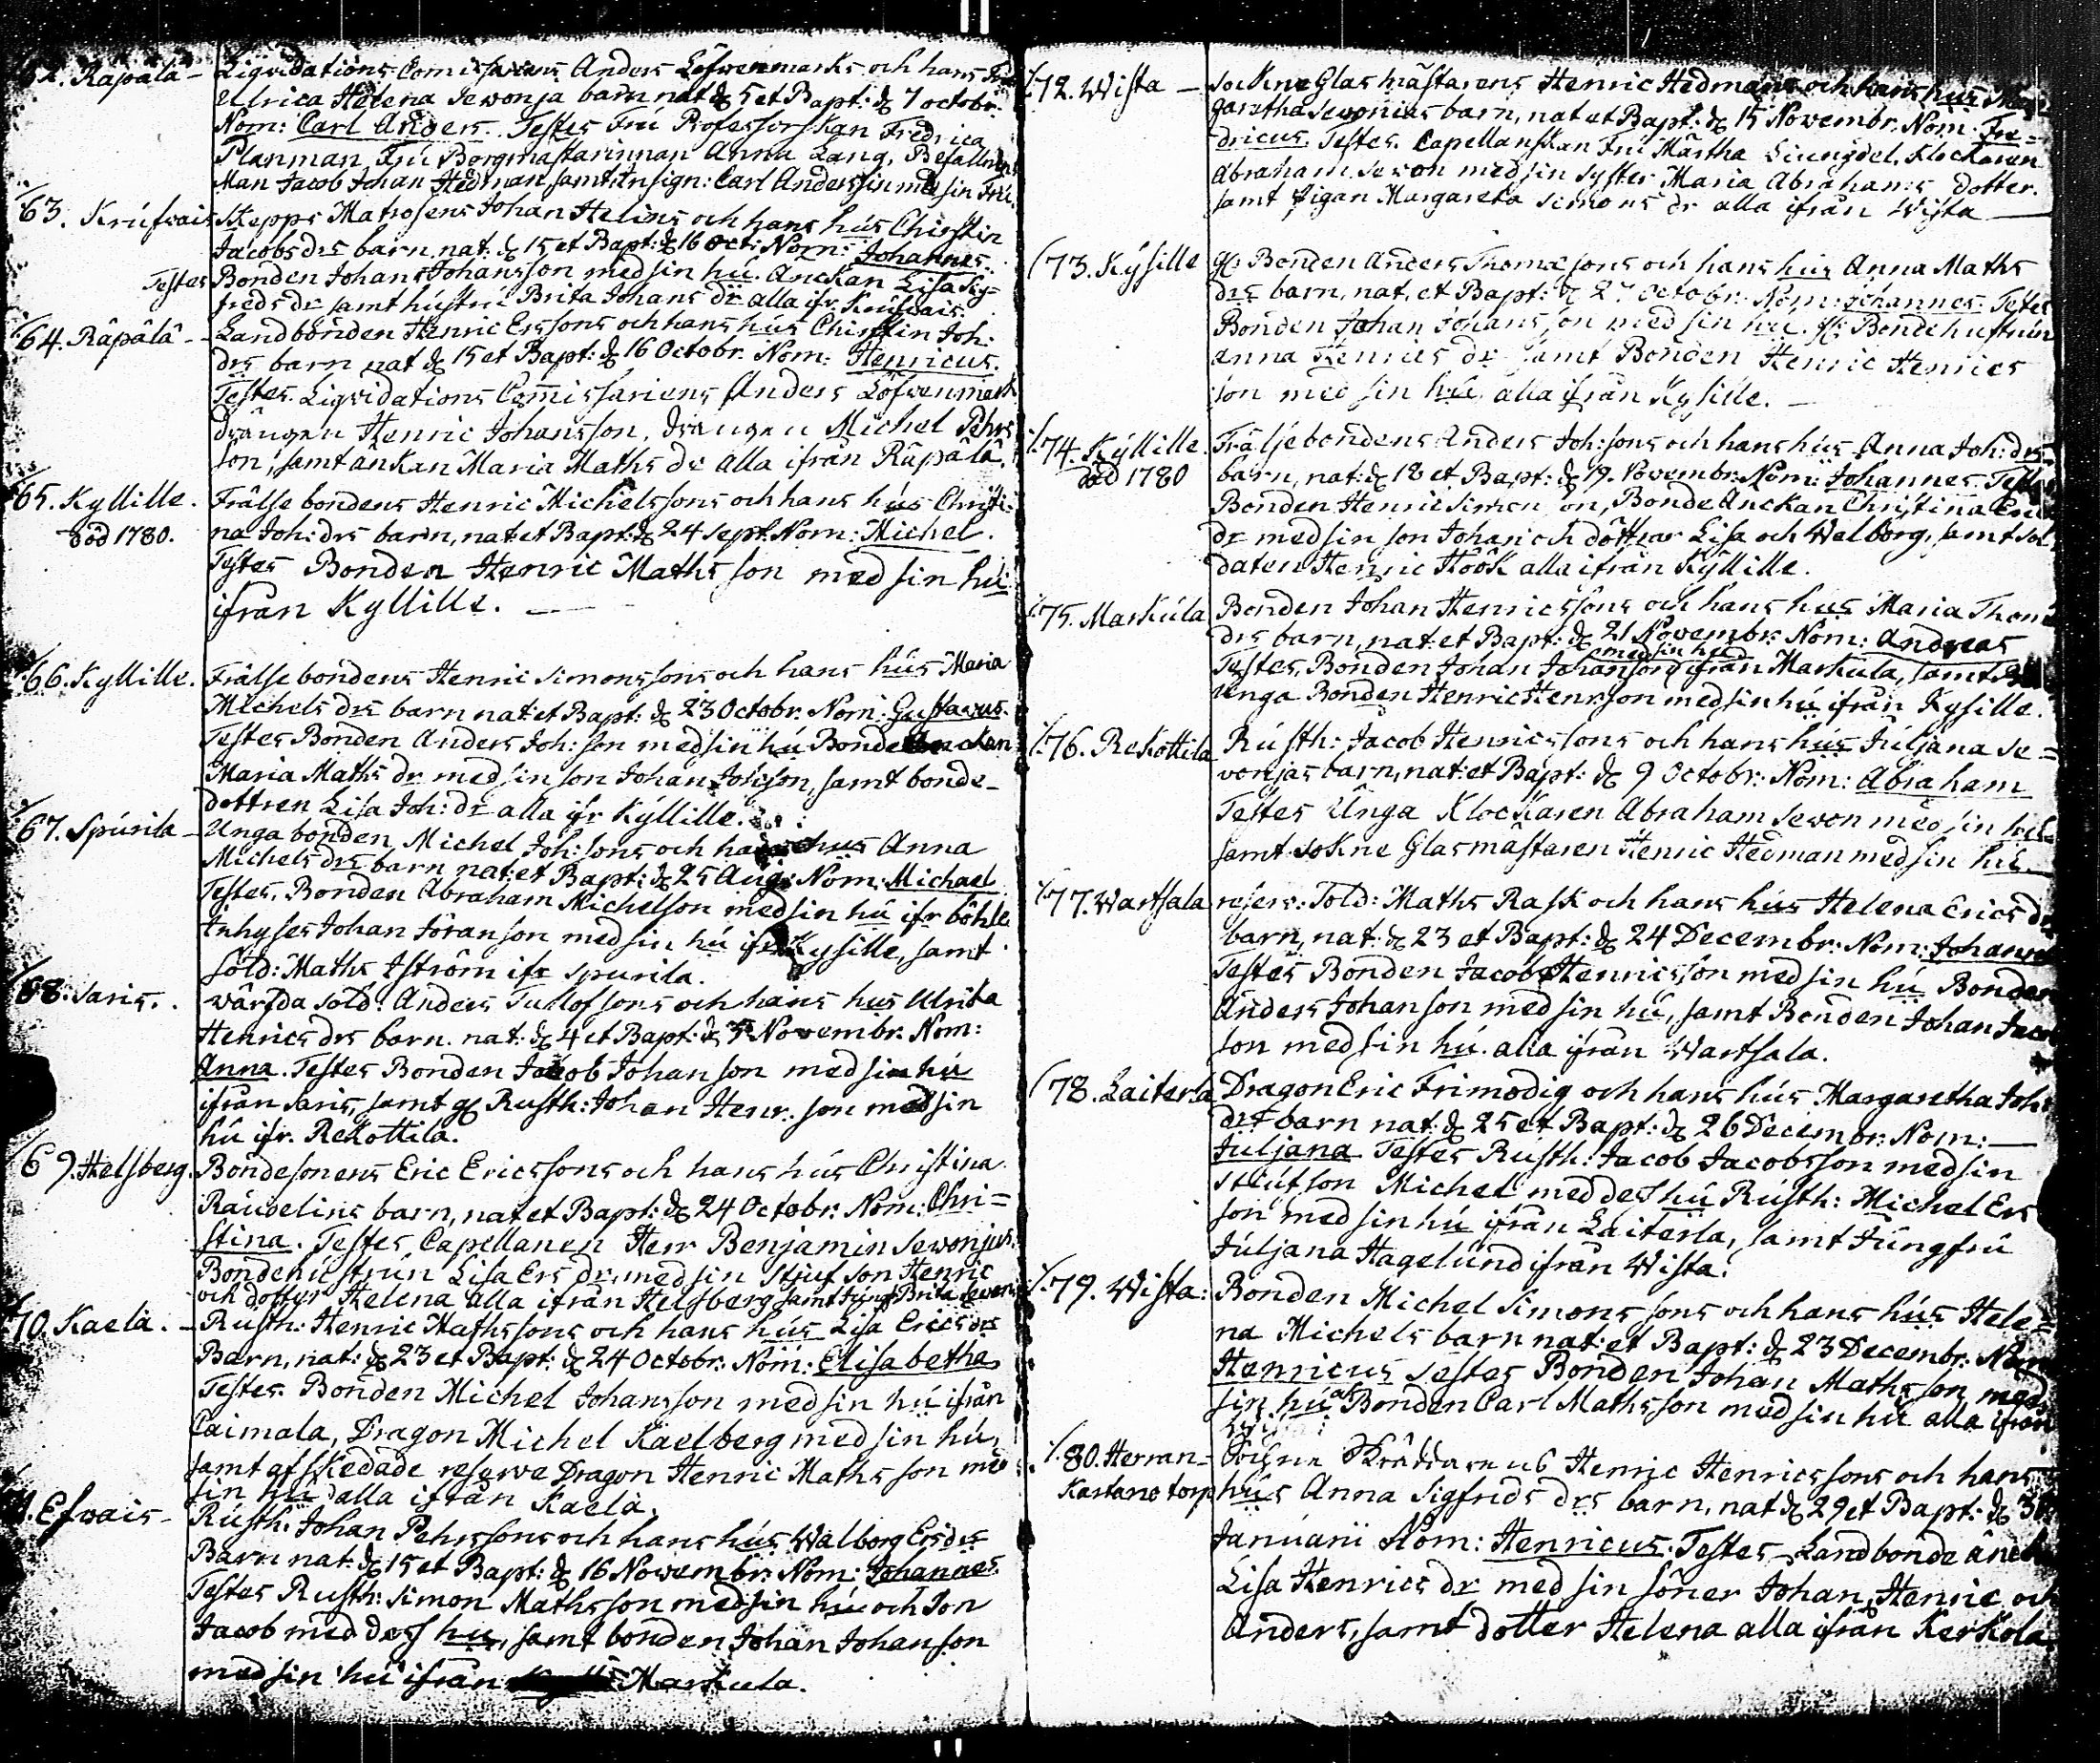 62. Råpålå - Liqvidations Comissariens Anders Löfwenmarks och hans Fru
Ulrica Helena Sewonja barn nat d. 5 et Bapt: d. 7 octobr.
Nom: Carl Anders. Testes Fru Professorskan Fredrica
Planman, Fru Borgmästarinnan Anna Lang, Befallnings
Man Jacob Johan Hedman, samt Insign: Carl Anders sin med sin Fru.
63. Krufwais Skepps Matrosens Johan Helins och hans hus Christin
Jacobs drs barn nat: d. 15 et Bapt: d. 16 Oct: Nom: Johannes.
Testes Bonden Johan Johansson med sin hu. Anckan Lisa Sig-
freds dr samt hustru Brita Johans dr alla ifr. Krufwais.
64. Råpålå - Landbonden Henric Erssons och hans hus Christin Joh:
drs barn nat d. 15 et Bapt: d. 16 Octobr. Nom: Henricus.
Testes. Liqvidations Comissariens Anders Löfwenmark
drängen Henric Johansson, drängen Michel Pehrs
son, samt änkan Maria Maths dr alla ifrån Råpålå.
65. Kyllille. Frälse bondens Henric Michelssons och hans hus Christi:
död 1780. na Joh: drs barn, nat et Bapt: d. 24 Sept. Nom: Michel.
Testes Bonden Henric Mathsson med sin hu:
ifrån Kyllille.
66. Kyllille. Frälse bondens Henric Simonssons och hans hus Maria
Michels drs barn nat: et Bapt: d. 23 Octobr. Nom: Gustavus.
Testes Bonden Anders Joh: son med sin hu Bonde Anckan
Maria Maths dr med sin son Johan Johsson, samt bonde-
dottren Lisa Joh: dr alla ifr Kyllille.
67. Spurila - Unga bonden Michel Joh: sons och hans hus Anna
Michels drs barn nat: et Bapt: d. 25 Aug: Nom: Michael
Testes. Bonden Abraham Michelson med sin hu ifr böhle
Inhyses Johan Göranson med sin hu ifr Kysille, samt
Sold: Maths Åström ifr Spurila.
68. Saris. wärfda sold: Anders Tullofsons och hans hus Ulrika
Henrics drs barn nat: d. 4 et Bapt: d. 5 Novembr. Nom:
Anna. Testes Bonden Jacob Johanson med sin hu
ifrån Saris, samt gl Rusth: Johan Henr. son med sin
hu ifr. Rekottila.
69. Helsberg. Bondesonens Eric Ericssons och hans hus Christina
Rauvelins barn, nat et Bapt: d. 24 Octobr. Nom: Chri=
stina. Testes Capellanen Herr Benjamin Sewonjus.
Bondehustrun Lisa Ers dr, med sin Stjuf son Henric
och dotter Helena alla ifrån Helsberg samt Jungf Brita Sewon
70. Kaela. - Rusth: Henric Mathssons och hans hus Lisa Erics drs
Barn, nat: d. 23 et Bapt: d. 24 Octobr: Nom: Elisabetha
Testes. Bonden Michel Johansson med sin hu ifrån
Caimala, Dragon Michel Kaelberg med sin hu,
samt afskedade reserve Dragon Henric Mathsson med
sin hu alla ifrån Kaela.
71. Efwais - Rusth: Johan Pehrssons och hans hus Walborg Ersdrs
Barn nat: d. 15 et Bapt: d. 16 Novembr: Nom: Johannes
Testes Rusth: Simon Mathsson med sin hu och Son
Jacob med des hu, samt bonden Johan Johanson
med sin hu ifrån Markula.
72. Wista - Sockne Glasmästarens Henric Hedmans och hans hus Mar
garetha Sewonias barn, nat et Bapt: d. 15 Novembr. Nom: Fre-
dricus. Testes. Capellanskan Fru Märtha Liungdel, Klockaren
Abraham Sewon med sin syster Maria Abrahams dotter.
samt Pigan Margareta Simons dr alla ifrån Wista
73. Kysille gl Bonden Anders Thomæ sons och hans hus Anna Maths
drs barn, nat. et Bapt: d. 27 Octobr. Nom: Johannes. Testes
Bonden Johan Johansson med sin hu. gl: Bonde hustrun
Anna Henrics dr samt Bonden Henric Henrics
son med sin hu alla ifrån Kysille.
74. Kyllille. Fräljebondens Anders Joh: sons och hans hus Anna Joh: drs
död 1780 barn, nat: d. 18 et Bapt: d. 19. Novembr. Nom: Johannes. Testes
Bonden Henric Simonson, Bonde Anckan Christina Erics
dr med sin son Johan och döttrar Lisa och Walborg, samt Sol
daten Henric Höök alla ifrån Kyllille.
75. Markula Bonden Johan Henricssons och hans hus Maria Thom
drs barn, nat: et Bapt: d. 21 Novembr: Nom: Andreas
med sin hu
Testes, Bonden Johan Johanson ifrån Markula, samt
Unga Bonden Henric Henrson med sin hu ifrån Kysille.
76. Rekottila Rusth: Jacob Henricssons och hans hus Juljana Se=
wonjas barn, nat: et Bapt: d. 9 Octobr: Nom: Abraham
Testes Unga Klockaren Abraham Sewon med sin hu
samt Sokne Glasmästaren Henric Hedman med sin hu.
77. Wartsala reserv: Sold: Maths Rask och hans hus Helena Erics drs
barn, nat: d. 23 et Bapt: d. 24 Decembr: Nom: Johannes
Testes Bonden Jacob Henricsson med sin hu Bonden
Anders Johanson med sin hu, samt Bonden Johan Jacob
son med sin hu alla ifrån Wartsala.
78. Laiterla Dragon Eric Frimodig och hans hus Margaretha Joh:
drs barn nat: d. 25 et Bapt: d. 26 Decembr. Nom:
Juljana Testes Rusth: Jacob Jacobsson med sin
Stiufson Michel med des hu Rusth: Michel Ers
son med sin hu ifrån Laiterla, samt Jungfru
Juljana Hagelund ifrån Wista.
79. Wista: Bonden Michel Simonssons och hans hus Hele=
na Michels barn nat: et Bapt: d. 23 Decembr. Nom
Henricus Testes Bonden Johan Mathsson med
sin hu Bonden Carl Mathsson med sin hu alla ifrån
80. Herran- Sochne Skräddarens Henric Henricssons och hans
Kartano torp hus Anna Sigfrids drs barn, nat d. 29 et Bapt: d. 30
Januarii Nom: Henricus. Testes Landbonde änck
Lisa Henrics dr med sin söner Johan, Henric och
Anders, samt dotter Helena alla ifrån Kerkola